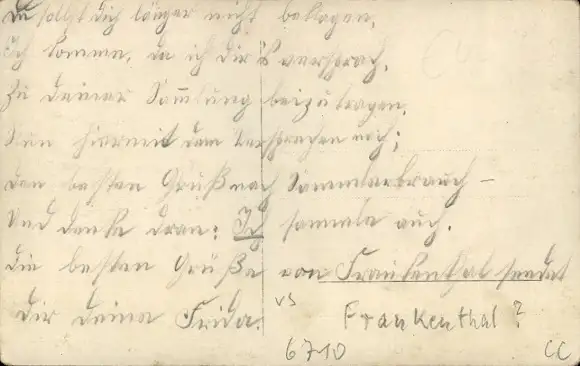 Du sollst dich länger nicht beklagen,
Ich komme, da ich dir's versprach,
Zu deiner Sam̄lung beizutragen,
Nun hiermit dem Versprechen nach;
den besten Gruß nach Sammlerbrauch –
Und denke dran: Ich sammele auch.
die besten Grüße von Frankenthal sendet
dir deine Frida.
vs Frankenthal?
6710 CC